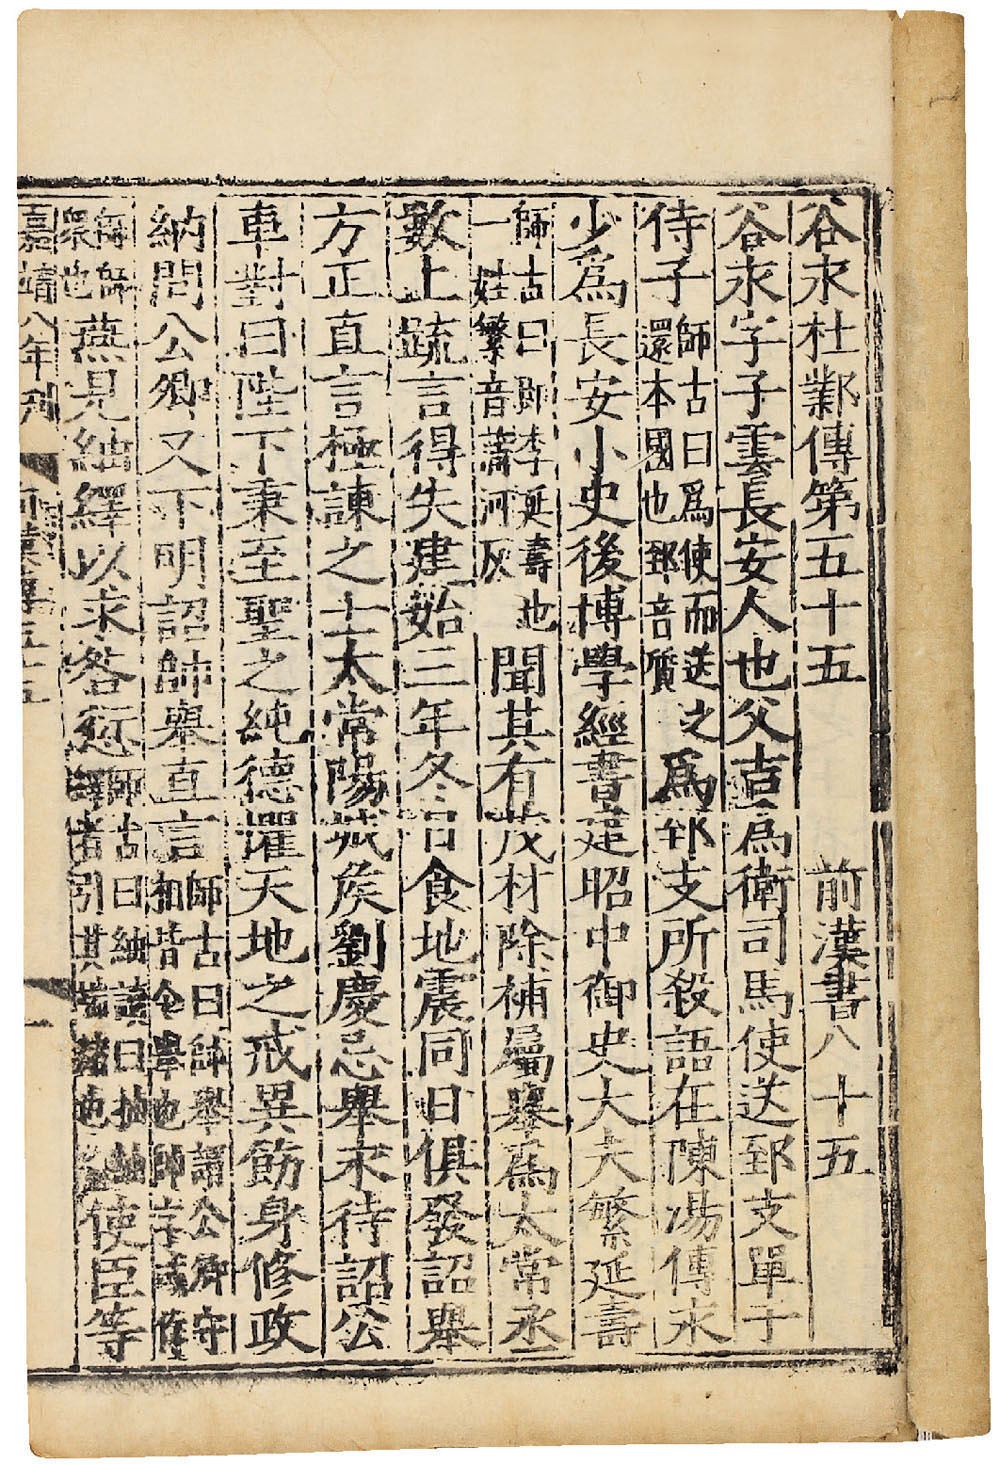 谷永杜鄴傳第五十五 前漢書八十五
谷永字子雲長安人也父吉爲衛司馬使送郅支單于
侍子師古曰爲使而送之還本國也郅音質爲郅支所殺語在陳湯傳永
少爲長安小史後博學經書建昭中御史大夫繁延壽
師古曰即李延壽也一姓繁音蒲河反聞其有茂材除補屬舉爲太常丞
數上疏言得失建始三年冬日食地震同日俱發詔舉
方正直言極諫之士太常陽城侯劉慶忌舉永待詔公
車對曰陛下秉至聖之純德懼天地之戒異飭身修政
納問公卿又下明詔帥舉直言師古曰帥舉謂公卿守相皆令舉也帥字或作
燕見紬繹以求咎愆師古曰紬讀曰抽紬繹者引其端緒也使臣等
嘉靖八年刊 前漢書五十五 一